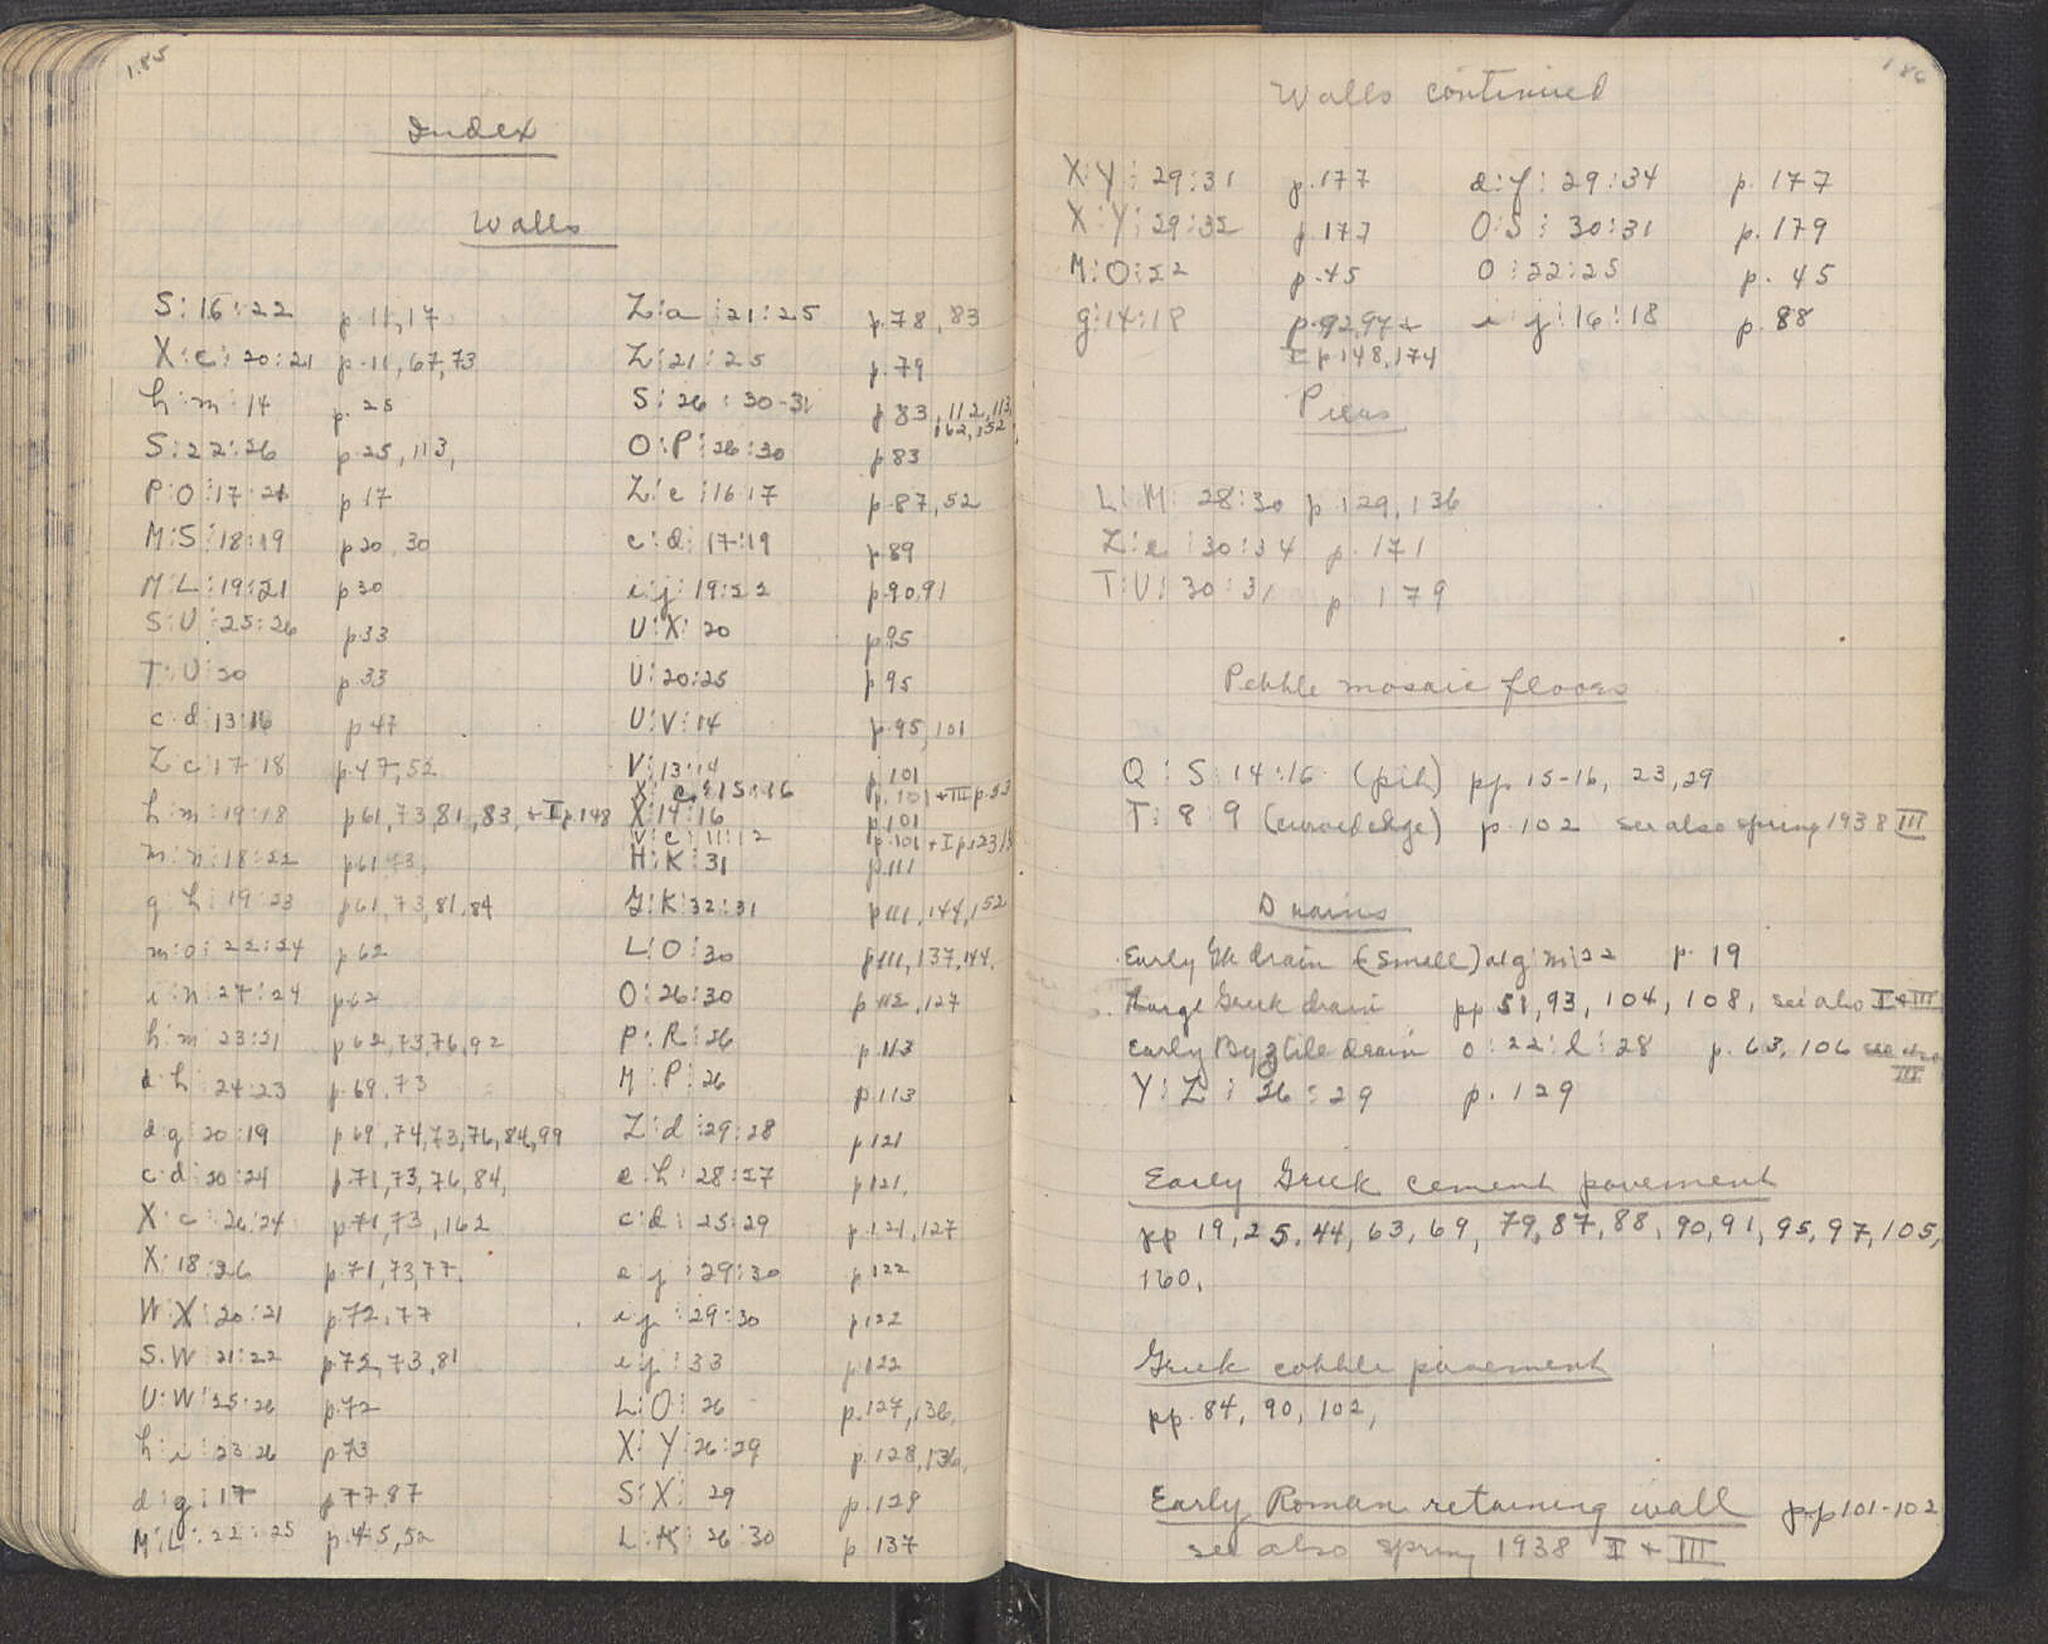 185
Index
Walls
S:16:22 p.11,17
X:c:20:21 p.11,67,73
h:m:14 p.25
S:22:26 p.25,113,
P:O:17:21 p 17
M:S:18:19 p 20,30
M:L:19:21 p 30
S:U:25:26 p.33
T:U:20 p.33
c:d:13:16 p 47
Z:c:17:18 p.47,52
h:m:19:18 p 61,73,81,83,+I p.148
m:n:18:22 p 61,73,
g:h:19:23 p 61,73,81,84
m:o:22:24 p 62
i:n:27:24 p 62
h:m:23:21 p 62,73,76,92
h:24:23 p.69,73
d:g:20:19 p 69,74,73,76,84,99
c:d:20:24 p.71,73,76,84,
X:c:26:24 p.71,73,162
X:18:26 p.71,73,77.
W:X:20:21 p.72,77
S:W:21:22 p.72,73,81
U:W:25:26 p.72
h:i:23:26 p 73
d:g:17 p 77 87
M:L:22:25 p.45,52
Z:a:21:25 p.78,83
Z:21:25 p.79
S:26:30-31 p 83,112,113,
162,152
O:P:26:30 p 83
Z:e:16:17 p.87,52
c:d:17:19 p 89
i:j:19:22 p.90,91
U:X:20 p 95
U:20:25 p 95
U:V:14 p.95,101
V:13:14 p 101
X:c:15:16 p.101+III p.53
X:14:16 p 101
V:c:11:12 p.101+I p.123
H:K:31 p.111
J:K:32:31 p 111,144,152
L:O:30 p 111,137,144.
O:26:30 p 112,127
P:R:26 p.113
M:P:26 p 113
Z:d:29:28 p 121
e:h:28:27 p 121,
c:d:25:29 p.121,127
e:j:29:30 p 122
i:j:29:30 p 122
i:j:33 p.122
L:O:26 p.127,136,
X:Y:26:29 p.128,136,
S:X:29 p.129
L:K:26:30 p 137
186
Walls continued
X:Y:29:31 p.177 d:f:29:34 p.177
X:Y:29:32 p.177 O:S:30:31 p.179
M:O:22 p.45 O:22:25 p.45
g:14:18 p.92,97+ i:j:16:18 p.88
I p 148,174
Piers
L:M:28:30 p 129,136
Z:e:30:34 p.171
T:U:30:31 p 179
Pebble mosaic floors
Q:S:14:16 (pit) pp 15-16, 23,29
T:8:9 (curved edge) p.102 see also spring 1938 III
Drains
Early Gk drain (small) at g:m:22 p.19
Large Greek drain pp 51,93,104,108, see also I+III
Early Byz tile drain o:22:l:28 p.63,106 see also
III
Y:Z:26:29 p.129
Early Greek cement pavement
pp 19,25,44,63,69,79,87,88,90,91,95,97,105,
160.
Greek cobble pavement
pp. 84, 90, 102,
Early Roman retaining wall pp 101-102
see also spring 1938 I + III